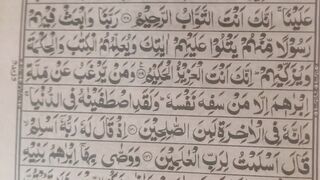 عَلَيْنَا ۚ اِنَّكَ اَنْتَ التَّوَّابُ الرَّحِيْمُ ﴿۱۲۸﴾ رَبَّنَا وَابْعَثْ فِيْهِمْ
رَسُوْلًا مِّنْهُمْ يَتْلُوْا عَلَيْهِمْ اٰيٰتِكَ وَيُعَلِّمُهُمُ الْكِتٰبَ وَالْحِكْمَةَ
وَيُزَكِّيْهِمْ ؕ اِنَّكَ اَنْتَ الْعَزِيْزُ الْحَكِيْمُ ﴿۱۲۹﴾ وَمَنْ يَّرْغَبُ عَنْ مِّلَّةِ
اِبْرٰهٖمَ اِلَّا مَنْ سَفِهَ نَفْسَهٗ ؕ وَلَقَدِ اصْطَفَيْنٰهُ فِى الدُّنْيَا ۚ
وَاِنَّهٗ فِى الْاٰخِرَةِ لَمِنَ الصّٰلِحِيْنَ ﴿۱۳۰﴾ اِذْ قَالَ لَهٗ رَبُّهٗۤ اَسْلِمْ ۙ
قَالَ اَسْلَمْتُ لِرَبِّ الْعٰلَمِيْنَ ﴿۱۳۱﴾ وَوَصّٰى بِهَاۤ اِبْرٰهٖمُ بَنِيْهِ